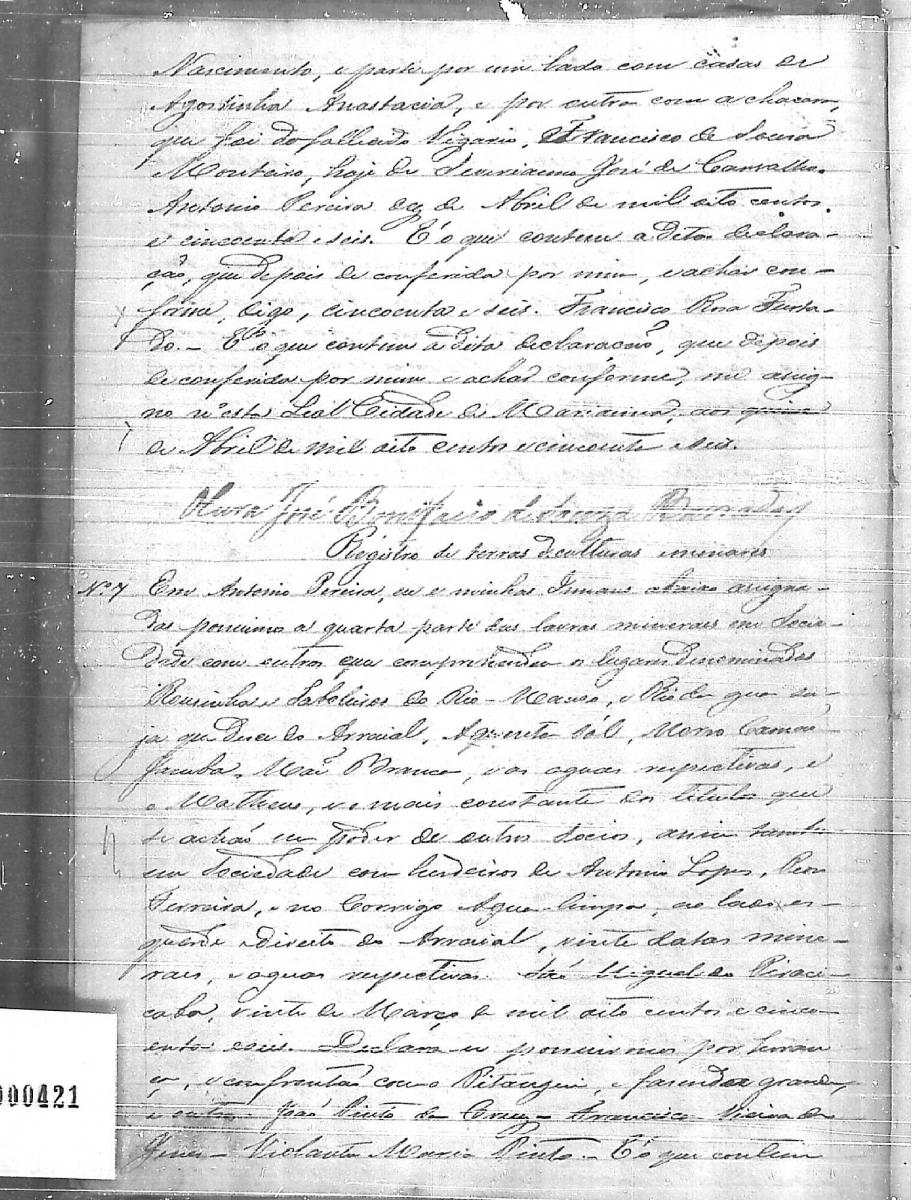 Nascimento, e parte por um lado com casas de
Agostinha Anastacia, e por outro com a chacara,
que foi do fallecido Vigario, Francisco de Souza
Monteiro, hoje de Severianno José de Carvalho.
Antonio Pereira de Abril de mil oito centos
e cincoenta e seis. E' o que contem a dita declara-
ção, que depois de conferida por mim, e achar con-
forme, digo, cincoenta e seis. Francisco Roza Furta-
do. - E' o que contem a dita declaração, que depois
de conferida por mim e achar conforme, me assig-
no n'esta Leal Cidade de Marianna, aos quinse
de Abril de mil oito centos e cincoenta e seis.
José Bonifacio de Souza Barradas
Registro de terras de culturas e menares
Nº 7 Em Antonio Pereira, eu e minhas Irmans abaixo assigna-
das possuimo a quarta parte das lavras minerais em Socie-
dade com outros, que comprehendem os lugares denominados
Rousinha e Taboleiros do Rio-Manso, e Rio da agua su-
ja que desce do Arraial, Aquenta Sól, Morro
Mão Branca, e as aguas respectivas, e
o Matheus, e o mais constante dos titulos que
se achão em poder de outros Socios, assim tambem
em Sociedade com herdeiros de Antonio Lopes,
Ferreira, e no Corrego Agua limpa, ao lado es-
querdo e direito do Arraial, vinte datas mine-
rais, e aguas respectivas. São Miguel do Piraci-
caba, vinte de Março de mil oito centos e cinco-
enta e seis. Declaro e possuirmos por heran-
ça, e confrontão com o Pitangui, e fasenda grande,
e outros João Pinto da Cruz - Francisca Vieira de
Jesus - Violante Maria Pinto. - E' o que contem
000421